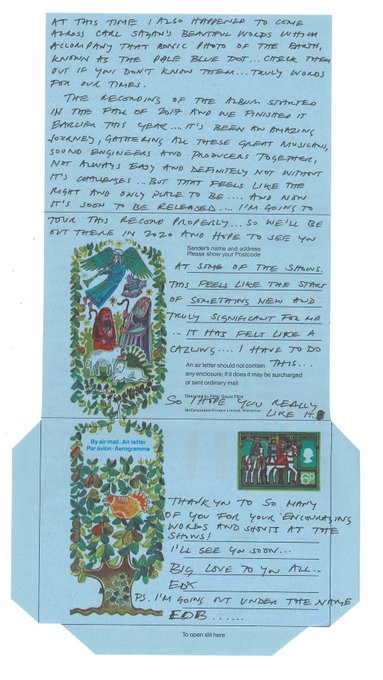 AT THIS TIME I ALSO HAPPENED TO COME
ACROSS CARL SAGAN'S BEAUTIFUL WORDS WHICH
ACCOMPANY THAT ICONIC PHOTO OF THE EARTH,
KNOWN AS THE PALE BLUE DOT... CHECK THEM
OUT IF YOU DON'T KNOW THEM... TRULY WORDS
FOR OUR TIMES.
THE RECORDING OF THE ALBUM STARTED
IN THE FALL OF 2017 AND WE FINISHED IT
EARLIER THIS YEAR... IT'S BEEN AN AMAZING
JOURNEY, GATHERING ALL THESE GREAT MUSICIANS,
SOUND ENGINEERS AND PRODUCERS TOGETHER,
NOT ALWAYS EASY AND DEFINITELY NOT WITHOUT
IT'S CHALLENGES... BUT THAT FEELS LIKE THE
RIGHT AND ONLY PLACE TO BE.... AND NOW
IT'S SOON TO BE RELEASED.... I'M GOING TO
TOUR THIS RECORD PROPERLY... SO WE'LL BE
OUT THERE IN 2020 AND HOPE TO SEE YOU
Sender's name and address
Please show your Postcode
AT SOME OF THE SHOWS.
THIS FEELS LIKE THE START
OF SOMETHING NEW AND
TRULY SIGNIFICANT FOR ME
.. IT HAS FELT LIKE A
CALLING.... I HAVE TO DO
THIS...
An air letter should not contain
any enclosure; if it does it may be surcharged
or sent ordinary mail
SO I HOPE YOU REALLY
LIKE IT.
By air mail. Air letter
Par avion · Aerogramme
6D
THANK YOU TO SO MANY
OF YOU FOR YOUR ENCOURAGING
WORDS AND SHOUTS AT THE
SHOWS!
I'LL SEE YOU SOON...
BIG LOVE TO YOU ALL..
EDX
PS. I'M GOING OUT UNDER THE NAME
EOB......
To open slit here